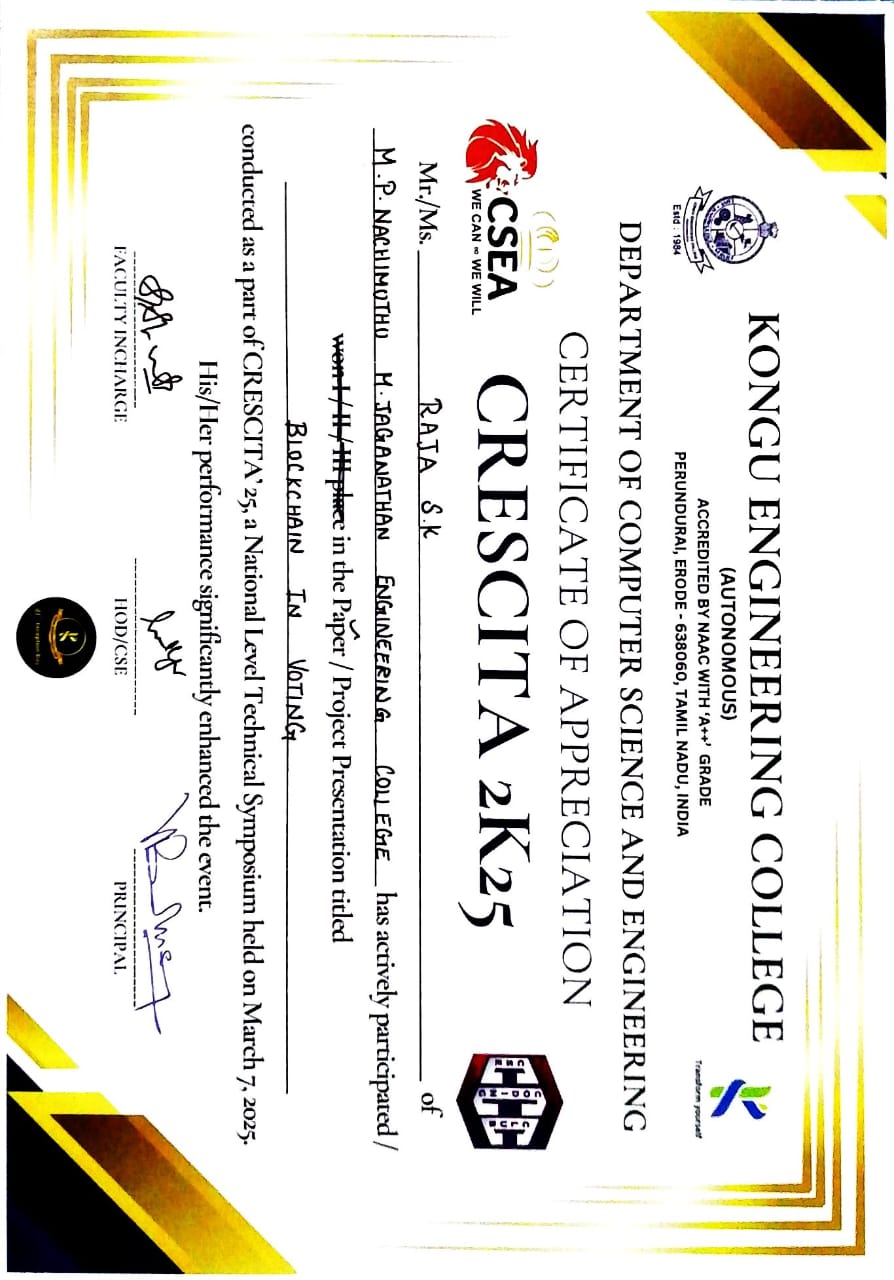 KONGU ENGINEERING COLLEGE
(AUTONOMOUS)
ACCREDITED BY NAAC WITH 'A++' GRADE
PERUNDURAI, ERODE - 638060, TAMIL NADU, INDIA
Estd : 1984
Transform yourself
DEPARTMENT OF COMPUTER SCIENCE AND ENGINEERING
CERTIFICATE OF APPRECIATION
CSEA
WE CAN ∞ WE WILL
CRESCITA 2K25
Mr./Ms. RAJA S.K of
M.P. NACHIMUTHU M. JAGANATHAN ENGINEERING COLLEGE has actively participated /
won I / II / III place in the Paper / Project Presentation titled
BLOCKCHAIN IN VOTING
conducted as a part of CRESCITA'25, a National Level Technical Symposium held on March 7, 2025.
His/Her performance significantly enhanced the event.
FACULTY INCHARGE
HOD/CSE
PRINCIPAL